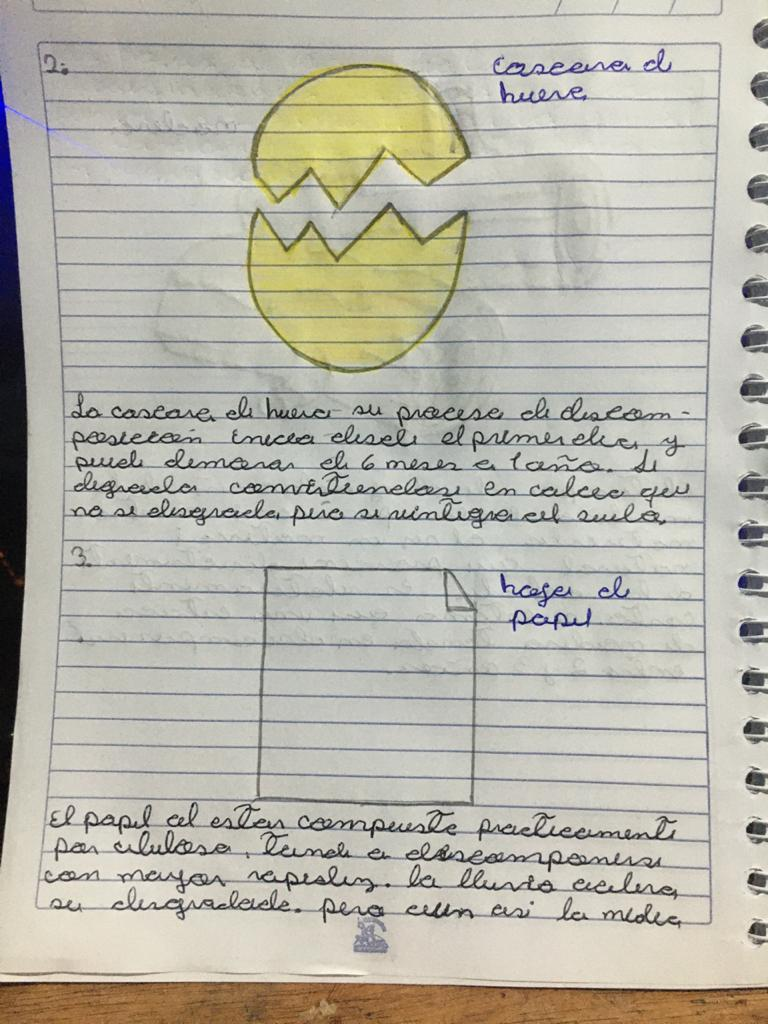 2.
cascara de
huevo
La cascara de huevo su proceso de descom-
posicion inicia desde el primer dia, y
puede demorar de 6 meses a 1 año. Se
degrada convirtiendose en calcio que
no se desgrada pero se reintegra al suelo.
3.
hoja de
papel
El papel al estar compuesto practicamente
por celulosa. tiende a descomponerse
con mayor rapidez. la lluvia acelera
su desgradade. pero aun asi la media